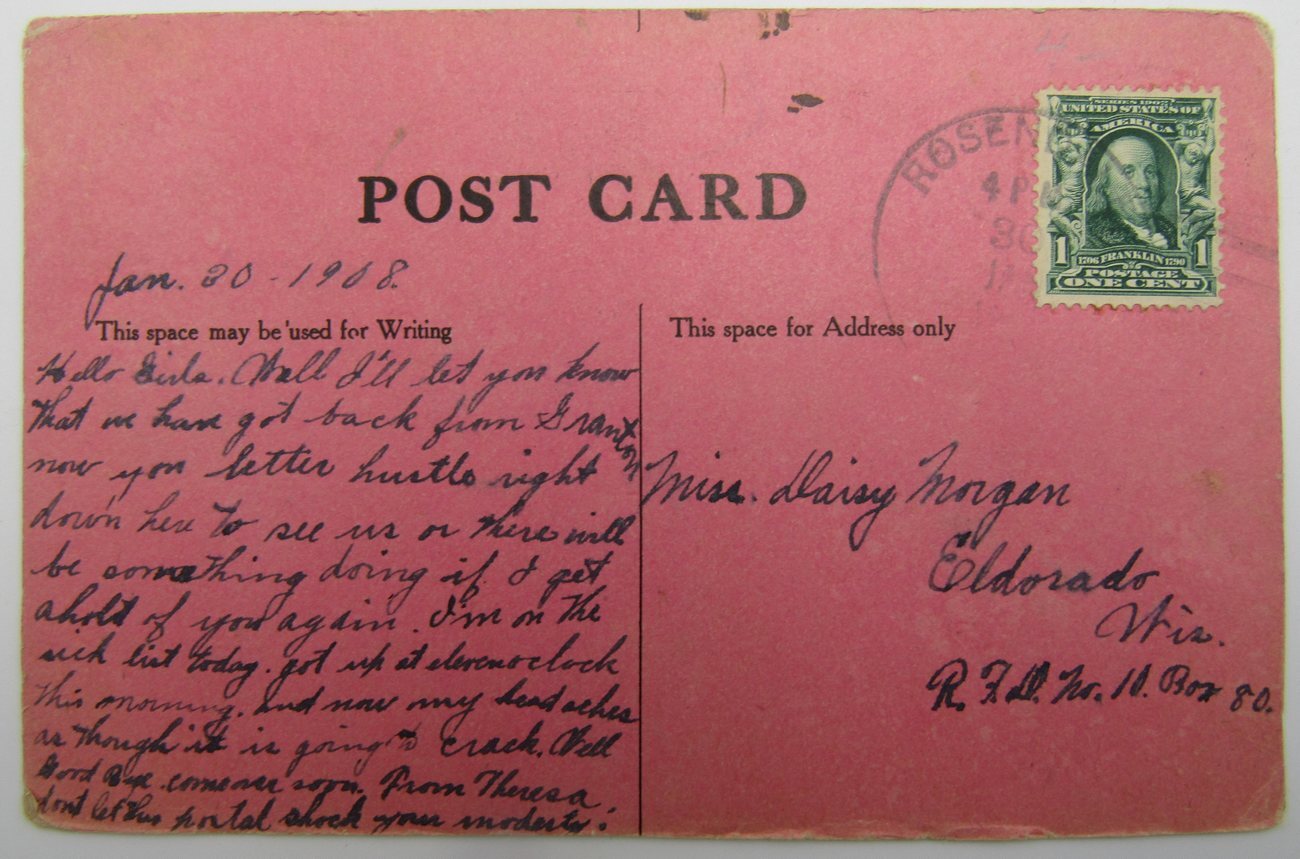 POST CARD
ROSEN
4 P
SERIES 1902
UNITED STATES OF
AMERICA
1 1706 FRANKLIN 1790 1
POSTAGE
ONE CENT
Jan. 30 - 1908.
This space may be used for Writing
Hello Girls. Well I'll let you know
that we have got back from Granton
now you better hustle right
down here to see us or there will
be something doing if I get
ahold of you again. I'm on the
sick list today. got up at eleven o clock
this morning. and now my head aches
as though it is going to crack. Well
Good Bye. come over soon. From Theresa.
dont let this postal shock your modesty.
This space for Address only
Miss. Daisy Morgan
Eldorado
Wis.
R. F. D. No. 10. Box 80.